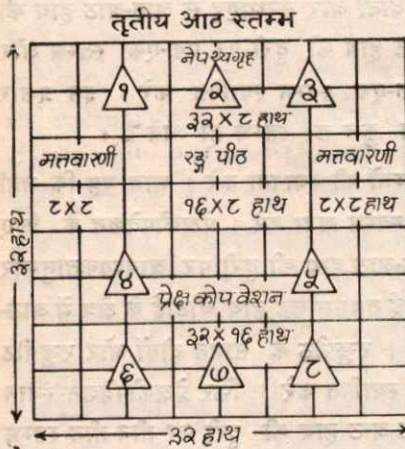 तृतीय आठ स्तम्भ
नेपथ्यगृह
१ २ ३
३२ × ८ हाथ
मत्तवारणी रङ्ग पीठ मत्तवारणी
८×८ १६×८ हाथ ८×८ हाथ
३२ हाथ
४ ५
प्रेक्ष कोप वेशन
३२ × १६ हाथ
६ ७ ८
३२ हाथ